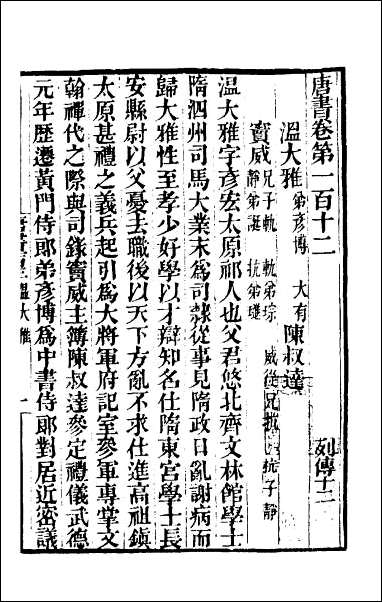 唐書卷第一百十二
列傳十二
溫大雅 弟彥博 大有 陳叔達
竇威 兄子軌 軌弟琮 威從兄抗 抗子靜 靜弟誕 抗弟璡
溫大雅字彥宏太原祁人也父君悠北齊文林館學士
隋泗州司馬大業末爲司隸從事見隋政日亂謝病而
歸大雅性至孝少好學以才辯知名仕隋東宮學士長
安縣尉以父憂去職後以天下方亂不求仕進高祖鎭
太原甚禮之義兵起引爲大將軍府記室參軍專掌文
翰禪代之際與司錄竇威主簿陳叔達參定禮儀武德
元年歷遷黃門侍郎弟彥博爲中書侍郎對居近密議
溫大雅
一